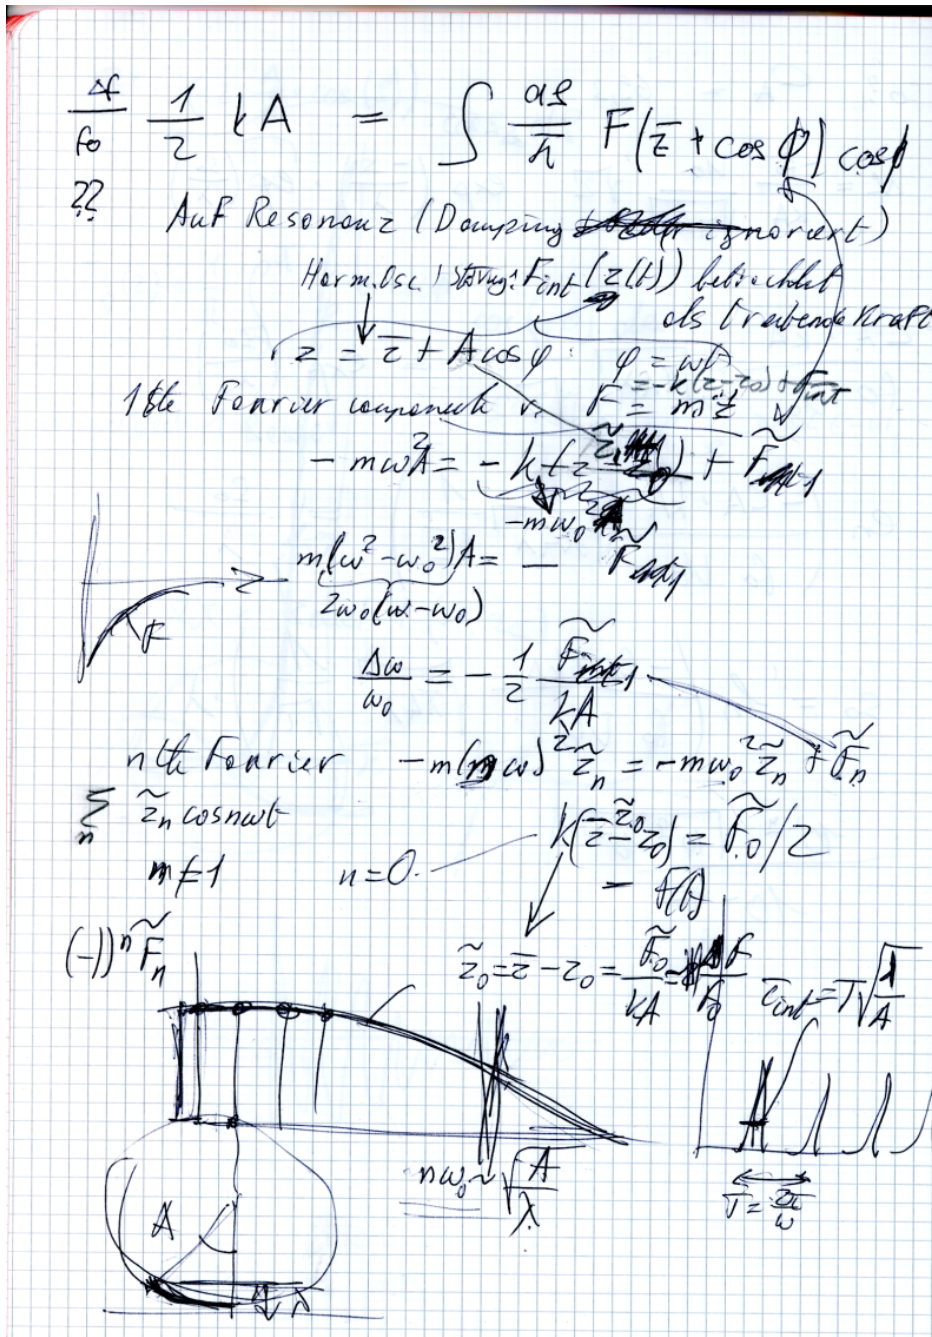 Δf/f₀ 1/2 kA = ∫ dφ/π F(z̄ + cos ϕ) cos ϕ
??
Auf Resonanz (Damping ignoriert)
Harm. Osc. F_int (z(t)) betrachtet
als treibende Kraft
z = z̄ + A cos φ φ = ωt
= -k(z-z₀) + F_int
1ste Fourier component F = m z̈
- mω²A = - k z̃₁ + F̃₁
-mω₀²
m(ω² - ω₀²)A = - F̃₁
2ω₀(ω - ω₀)
z
F
Δω/ω₀ = - 1/2 F̃₁/kA
nth Fourier -m(nω)² z̃ₙ = -mω₀² z̃ₙ + F̃ₙ
Σₙ z̃ₙ cos nωt
k(z̄ - z₀) = F̃₀/2
z̃₀
n ≠ 1 n = 0
(-1)ⁿ F̃ₙ
z̃₀ = z̄ - z₀ = F̃₀/kA = ΔF/F₀
τ_int = T √(λ/A)
nω₀ ~ √(A/λ)
T = 2π/ω
A
λ